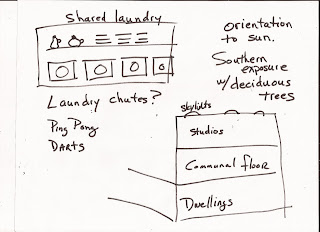 Shared laundry
Laundry chutes?
Ping Pong
DARTS
orientation
to sun.
Southern
exposure
w/deciduous
trees
Skylights
Studios
Communal floor
Dwellings